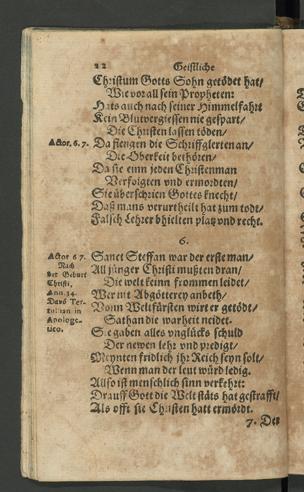 22 Geistliche
Christum Gotts Sohn getödet hat/
Wie vor all sein Propheten:
Hats auch nach seiner Himmelfahrt
Kein Blutvergiessen nie gespart/
Die Christen lassen töden/
Actor. 6. 7. Da fiengen die Schrifftglerten an/
Die Oberkeit bethören/
Da sie einn jeden Christenman
Verfolgten vnd ermordten/
Sie überschrien Gottes knecht/
Daß mans verurtheilt hat zum todt/
Falsch Lehrer bhielten platz vnd recht.
6.
Actor 6 7.
Nach
der Geburt
Christi,
Ann. 34.
Davō Ter-
tullian in
Apologe-
tico.
Sanct Steffan war der erste man/
All jünger Christi mußten dran/
Die welt keinn frommen leidet/
Wer nit Abgötterey anbeth/
Vonn Weltfürsten wirt er getödt/
Sathan die warheit neidet.
Sie gaben alles vnglücks schuld
Der newen lehr vnd predigt/
Meynten fridlich jhr Reich seyn solt/
Wenn man der leut würd ledig.
Allso ist menschlich sinn verkehrt:
Drauff Gott die Welt stäts hat gestrafft/
Als offt sie Christen hatt ermördt.
7. Der